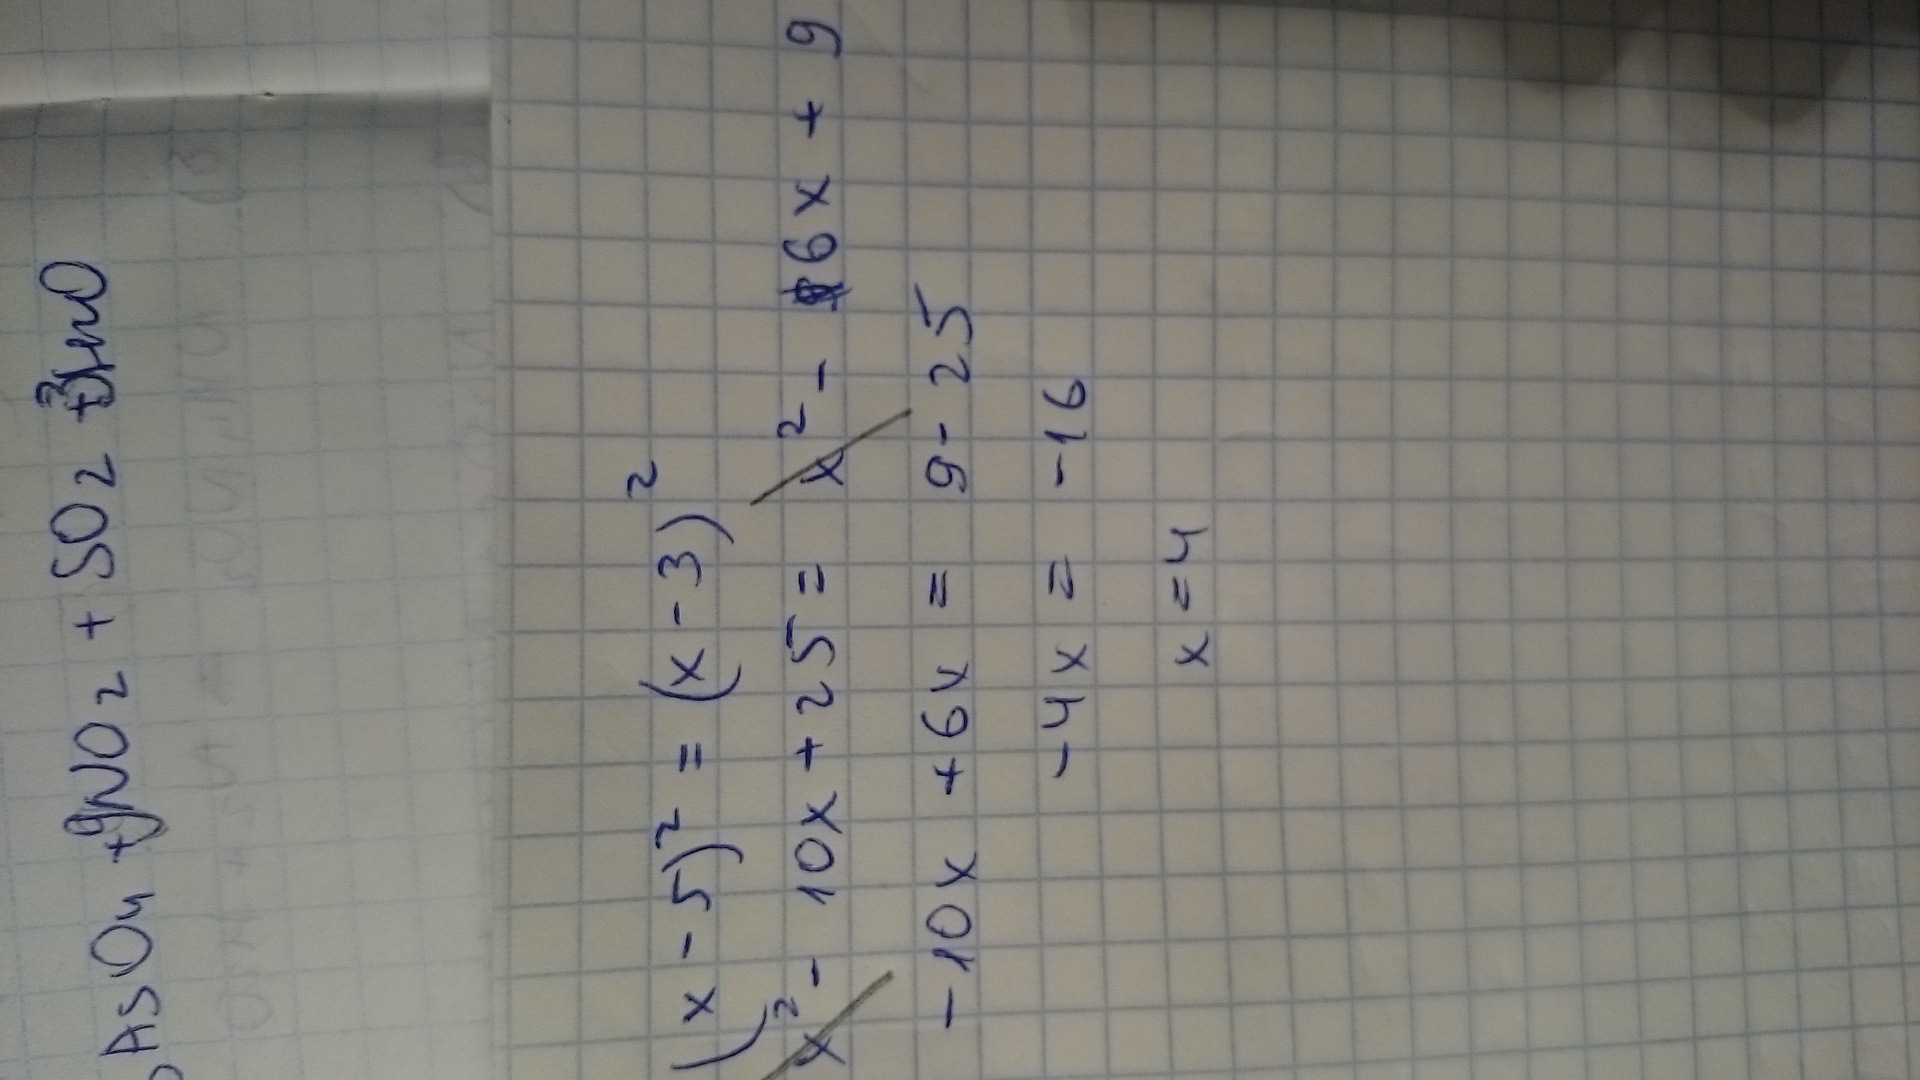 AsO4 + 9NO2 + SO2 + 3H2O
(x - 5)² = (x - 3)²
x² - 10x + 25 = x² - 6x + 9
-10x + 6x = 9 - 25
-4x = -16
x = 4